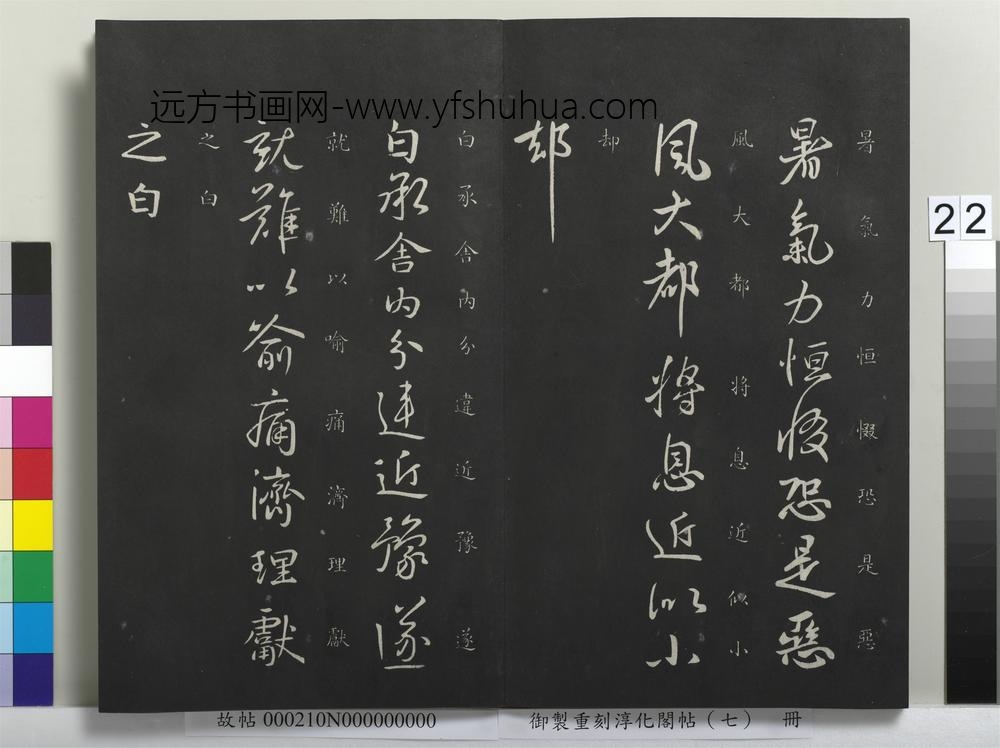 远方书画网-www.yfshuhua.com
暑氣力恒惙恐是惡
暑氣力恒惙恐是惡
風大都將息近似小
風大都將息近似小
却
却
白承舍內分違近豫遂
白承舍內分違近豫遂
就難以喻痛濟理獻
就難以喻痛濟理獻
之白
之白
22
故帖 000210N000000000
御製重刻淳化閣帖（七） 冊